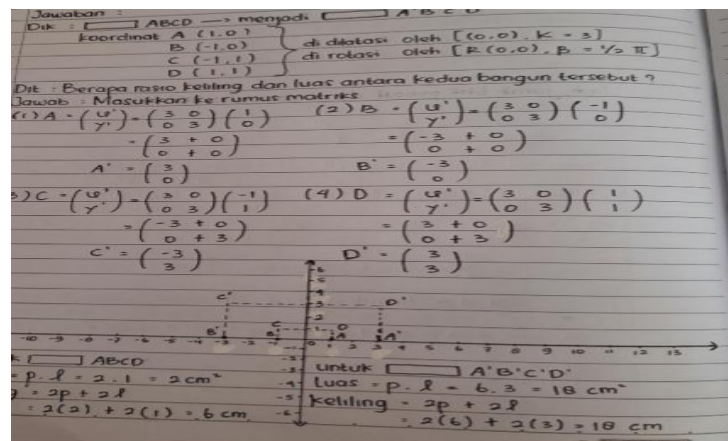 Jawaban :
Dik : ▭ ABCD → menjadi ▭ A'B'C'D'
koordinat A (1,0)
B (-1,0)
C (-1,1)
D (1,1)
di dilatasi oleh [(0,0), K = 3]
di rotasi oleh [R(0,0), β = 1/2 π]
Dit : Berapa rasio keliling dan luas antara kedua bangun tersebut ?
Jawab : Masukkan ke rumus matriks
(1) A = (x' y') = (3 0 0 3) (1 0)
= (3 + 0 0 + 0)
A' = (3 0)
(2) B = (x' y') = (3 0 0 3) (-1 0)
= (-3 + 0 0 + 0)
B' = (-3 0)
3) C = (x' y') = (3 0 0 3) (-1 1)
= (-3 + 0 0 + 3)
C' = (-3 3)
(4) D = (x' y') = (3 0 0 3) (1 1)
= (3 + 0 0 + 3)
D' = (3 3)
C' D'
C D
B' B A A'
▭ ABCD
= p.l = 2.1 = 2 cm²
= 2p + 2l
= 2(2) + 2(1) = 6 cm
untuk ▭ A'B'C'D'
Luas = p.l = 6.3 = 18 cm²
keliling = 2p + 2l
= 2(6) + 2(3) = 18 cm